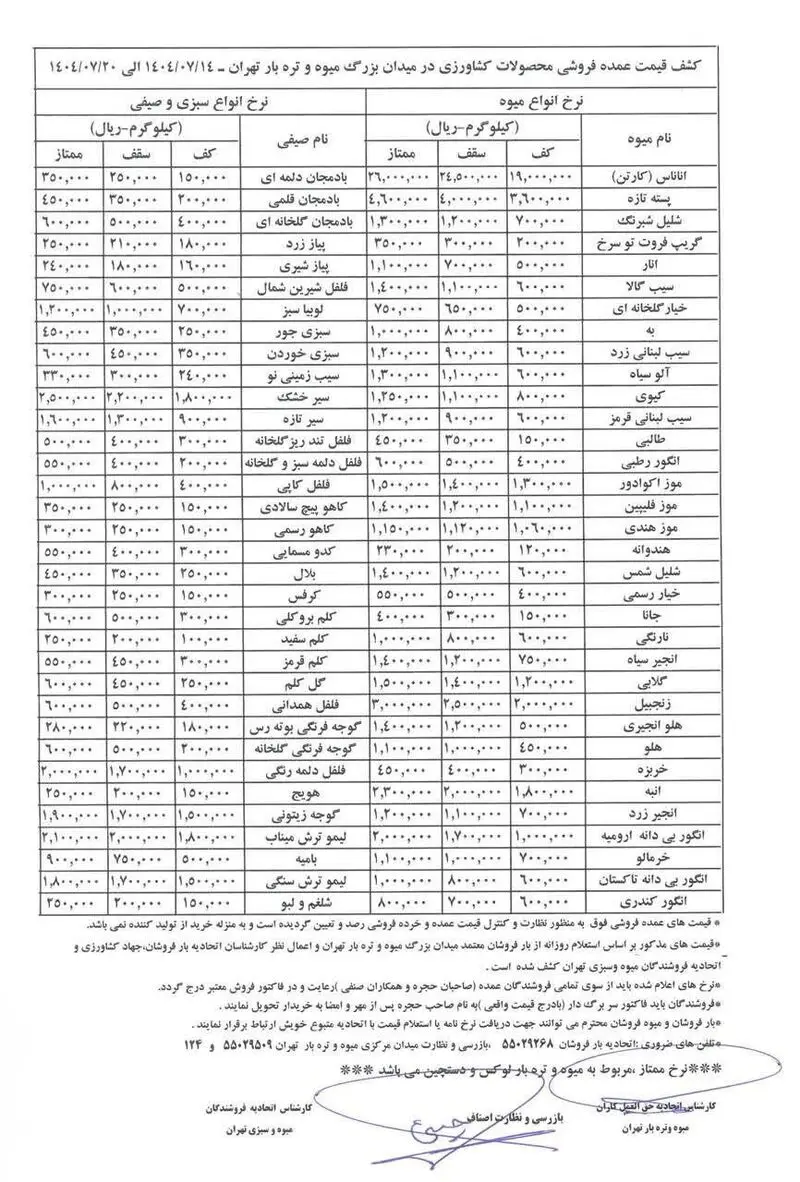 کشف قیمت عمده فروشی محصولات کشاورزی در میدان بزرگ میوه و تره بار تهران ـ ۱۴۰۴/۰۷/۱۴ الی ۱۴۰۴/۰۷/۲۰
نرخ انواع میوه نرخ انواع سبزی و صیفی
نام میوه (کیلوگرم-ریال) نام صیفی (کیلوگرم-ریال)
کف سقف ممتاز کف سقف ممتاز
اناناس (کارتن) ۱۹,۰۰۰,۰۰۰ ۲۴,۵۰۰,۰۰۰ ۲۶,۰۰۰,۰۰۰ بادمجان دلمه ای ۱۵۰,۰۰۰ ۲۵۰,۰۰۰ ۳۵۰,۰۰۰
پسته تازه ۳,۶۰۰,۰۰۰ ۴,۰۰۰,۰۰۰ ۴,۶۰۰,۰۰۰ بادمجان قلمی ۲۰۰,۰۰۰ ۳۵۰,۰۰۰ ۴۵۰,۰۰۰
شلیل شبرنگ ۷۰۰,۰۰۰ ۱,۲۰۰,۰۰۰ ۱,۳۰۰,۰۰۰ بادمجان گلخانه ای ۴۰۰,۰۰۰ ۵۰۰,۰۰۰ ۶۰۰,۰۰۰
گریپ فروت تو سرخ ۲۰۰,۰۰۰ ۳۰۰,۰۰۰ ۳۵۰,۰۰۰ پیاز زرد ۱۸۰,۰۰۰ ۲۱۰,۰۰۰ ۲۵۰,۰۰۰
انار ۵۰۰,۰۰۰ ۷۰۰,۰۰۰ ۱,۱۰۰,۰۰۰ پیاز شیری ۱۶۰,۰۰۰ ۱۸۰,۰۰۰ ۲۴۰,۰۰۰
سیب گالا ۶۰۰,۰۰۰ ۱,۱۰۰,۰۰۰ ۱,۴۰۰,۰۰۰ فلفل شیرین شمال ۵۰۰,۰۰۰ ۶۰۰,۰۰۰ ۷۵۰,۰۰۰
خیارگلخانه ای ۵۰۰,۰۰۰ ۶۵۰,۰۰۰ ۷۵۰,۰۰۰ لوبیا سبز ۷۰۰,۰۰۰ ۱,۰۰۰,۰۰۰ ۱,۲۰۰,۰۰۰
به ۴۰۰,۰۰۰ ۸۰۰,۰۰۰ ۱,۰۰۰,۰۰۰ سبزی جور ۲۵۰,۰۰۰ ۳۵۰,۰۰۰ ۴۵۰,۰۰۰
سیب لبنانی زرد ۶۰۰,۰۰۰ ۹۰۰,۰۰۰ ۱,۲۰۰,۰۰۰ سبزی خوردن ۳۵۰,۰۰۰ ۴۵۰,۰۰۰ ۶۰۰,۰۰۰
آلو سیاه ۶۰۰,۰۰۰ ۱,۱۰۰,۰۰۰ ۱,۳۰۰,۰۰۰ سیب زمینی نو ۲۴۰,۰۰۰ ۳۰۰,۰۰۰ ۳۳۰,۰۰۰
کیوی ۸۰۰,۰۰۰ ۱,۱۰۰,۰۰۰ ۱,۲۵۰,۰۰۰ سیر خشک ۱,۸۰۰,۰۰۰ ۲,۲۰۰,۰۰۰ ۲,۵۰۰,۰۰۰
سیب لبنانی قرمز ۶۰۰,۰۰۰ ۹۰۰,۰۰۰ ۱,۲۰۰,۰۰۰ سیر تازه ۹۰۰,۰۰۰ ۱,۳۰۰,۰۰۰ ۱,۶۰۰,۰۰۰
طالبی ۱۵۰,۰۰۰ ۳۵۰,۰۰۰ ۴۵۰,۰۰۰ فلفل تند ریزگلخانه ۳۰۰,۰۰۰ ۴۰۰,۰۰۰ ۵۰۰,۰۰۰
انگور رطبی ۴۰۰,۰۰۰ ۵۰۰,۰۰۰ ۶۰۰,۰۰۰ فلفل دلمه سبز و گلخانه ۲۰۰,۰۰۰ ۴۰۰,۰۰۰ ۵۵۰,۰۰۰
موز اکوادور ۱,۳۰۰,۰۰۰ ۱,۴۰۰,۰۰۰ ۱,۵۰۰,۰۰۰ فلفل کاپی ۴۰۰,۰۰۰ ۸۰۰,۰۰۰ ۱,۰۰۰,۰۰۰
موز فلیپین ۱,۱۰۰,۰۰۰ ۱,۲۰۰,۰۰۰ ۱,۴۰۰,۰۰۰ کاهو پیچ سالادی ۱۵۰,۰۰۰ ۲۵۰,۰۰۰ ۳۵۰,۰۰۰
موز هندی ۱,۰۶۰,۰۰۰ ۱,۱۲۰,۰۰۰ ۱,۱۵۰,۰۰۰ کاهو رسمی ۱۵۰,۰۰۰ ۲۵۰,۰۰۰ ۳۰۰,۰۰۰
هندوانه ۱۲۰,۰۰۰ ۲۰۰,۰۰۰ ۲۳۰,۰۰۰ کدو مسمایی ۳۰۰,۰۰۰ ۴۰۰,۰۰۰ ۵۵۰,۰۰۰
شلیل شمس ۶۰۰,۰۰۰ ۱,۲۰۰,۰۰۰ ۱,۴۰۰,۰۰۰ بلال ۲۵۰,۰۰۰ ۳۵۰,۰۰۰ ۴۵۰,۰۰۰
خیار رسمی ۴۰۰,۰۰۰ ۵۰۰,۰۰۰ ۵۵۰,۰۰۰ کرفس ۱۵۰,۰۰۰ ۲۵۰,۰۰۰ ۳۰۰,۰۰۰
جانا ۱۵۰,۰۰۰ ۳۰۰,۰۰۰ ۴۰۰,۰۰۰ کلم بروکلی ۳۰۰,۰۰۰ ۵۰۰,۰۰۰ ۶۰۰,۰۰۰
نارنگی ۶۰۰,۰۰۰ ۸۰۰,۰۰۰ ۱,۰۰۰,۰۰۰ کلم سفید ۱۰۰,۰۰۰ ۲۰۰,۰۰۰ ۲۵۰,۰۰۰
انجیر سیاه ۷۵۰,۰۰۰ ۱,۲۰۰,۰۰۰ ۱,۴۰۰,۰۰۰ کلم قرمز ۳۰۰,۰۰۰ ۴۵۰,۰۰۰ ۵۵۰,۰۰۰
گلابی ۱,۲۰۰,۰۰۰ ۱,۴۰۰,۰۰۰ ۱,۵۰۰,۰۰۰ گل کلم ۲۵۰,۰۰۰ ۴۵۰,۰۰۰ ۶۰۰,۰۰۰
زنجبیل ۲,۰۰۰,۰۰۰ ۲,۵۰۰,۰۰۰ ۳,۰۰۰,۰۰۰ فلفل همدانی ۴۰۰,۰۰۰ ۵۰۰,۰۰۰ ۶۰۰,۰۰۰
هلو انجیری ۵۰۰,۰۰۰ ۱,۲۰۰,۰۰۰ ۱,۴۰۰,۰۰۰ گوجه فرنگی بوته رس ۱۸۰,۰۰۰ ۲۲۰,۰۰۰ ۲۸۰,۰۰۰
هلو ۴۵۰,۰۰۰ ۱,۰۰۰,۰۰۰ ۱,۱۰۰,۰۰۰ گوجه فرنگی گلخانه ۲۰۰,۰۰۰ ۵۰۰,۰۰۰ ۶۰۰,۰۰۰
خربزه ۳۰۰,۰۰۰ ۴۰۰,۰۰۰ ۴۵۰,۰۰۰ فلفل دلمه رنگی ۱,۰۰۰,۰۰۰ ۱,۷۰۰,۰۰۰ ۲,۰۰۰,۰۰۰
انبه ۱,۸۰۰,۰۰۰ ۲,۰۰۰,۰۰۰ ۲,۳۰۰,۰۰۰ هویج ۱۵۰,۰۰۰ ۲۰۰,۰۰۰ ۲۵۰,۰۰۰
انجیر زرد ۷۰۰,۰۰۰ ۱,۱۰۰,۰۰۰ ۱,۲۰۰,۰۰۰ گوجه زیتونی ۱,۵۰۰,۰۰۰ ۱,۷۰۰,۰۰۰ ۱,۹۰۰,۰۰۰
انگور بی دانه ارومیه ۱,۰۰۰,۰۰۰ ۱,۷۰۰,۰۰۰ ۲,۰۰۰,۰۰۰ لیمو ترش میناب ۱,۸۰۰,۰۰۰ ۲,۰۰۰,۰۰۰ ۲,۱۰۰,۰۰۰
خرمالو ۷۰۰,۰۰۰ ۱,۰۰۰,۰۰۰ ۱,۱۰۰,۰۰۰ بامیه ۵۰۰,۰۰۰ ۷۵۰,۰۰۰ ۹۰۰,۰۰۰
انگور بی دانه تاکستان ۶۰۰,۰۰۰ ۸۰۰,۰۰۰ ۱,۰۰۰,۰۰۰ لیمو ترش سنگی ۱,۵۰۰,۰۰۰ ۱,۷۰۰,۰۰۰ ۱,۸۰۰,۰۰۰
انگور کندری ۶۰۰,۰۰۰ ۷۰۰,۰۰۰ ۸۰۰,۰۰۰ شلغم و لبو ۱۵۰,۰۰۰ ۲۰۰,۰۰۰ ۲۵۰,۰۰۰
* قیمت های عمده فروشی فوق به منظور نظارت و کنترل قیمت عمده و خرده فروشی رصد و تعیین گردیده است و به منزله خرید از تولید کننده نمی باشد.
*قیمت های مذکور بر اساس استعلام روزانه از بار فروشان معتمد میدان بزرگ میوه و تره بار تهران و اعمال نظر کارشناسان اتحادیه بار فروشان،جهاد کشاورزی و
اتحادیه فروشندگان میوه وسبزی تهران کشف شده است .
*نرخ های اعلام شده باید از سوی تمامی فروشندگان عمده (صاحبان حجره و همکاران صنفی )رعایت و در فاکتور فروش معتبر درج گردد.
*فروشندگان باید فاکتور سر برگ دار (بادرج قیمت واقعی )به نام صاحب حجره پس از مهر و امضا به خریدار تحویل نمایند .
*بار فروشان و میوه فروشان محترم می توانند جهت دریافت نرخ نامه یا استعلام قیمت با اتحادیه متبوع خویش ارتباط برقرار نمایند .
*تلفن های ضروری :اتحادیه بار فروشان ۵۵۰۲۹۲۶۸ ،بازرسی و نظارت میدان مرکزی میوه و تره بار تهران ۵۵۰۲۹۵۰۹ و ۱۲۴
***نرخ ممتاز ،مربوط به میوه و تره بار لوکس و دستچین می باشد ***
کارشناس اتحادیه حق العمل کاران بازرسی و نظارت اصناف کارشناس اتحادیه فروشندگان
میوه وتره بار تهران میوه و سبزی تهران